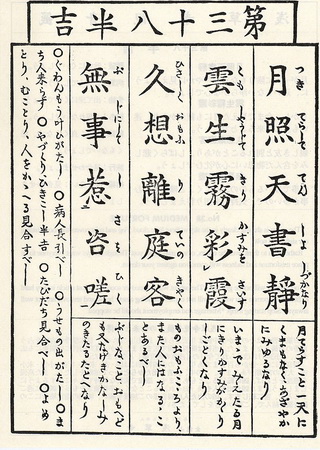 第三十八半吉
つき てらして てん しよ しづかなり
月照天書靜
月てらすこと一天に
くまもなく、あざやか
にみゆるなり
くも しやうして きり かすみを さいす
雲生霧彩霞
いままでみえたる月
にきりかすみがかゝり
しごとくなり
ひさしく おもふ り ていの きやく
久想離庭客
ものおもふこゝろより、
また人にはなるゝこ
とあるべし
ぶ じにして し さを ひく
無事惹咨嗟
ぶじなこと、おもへど
も又なげきかなしみ
のきたるたとへなり
○ぐわんもう叶ひがたし ○病人長引べし ○うせもの出がたし ○ま
ち人来らず ○やづくり、ひきこし半吉 ○たびだち見合すべし ○よめ
とり、むことり、人をかゝへる見合すべし